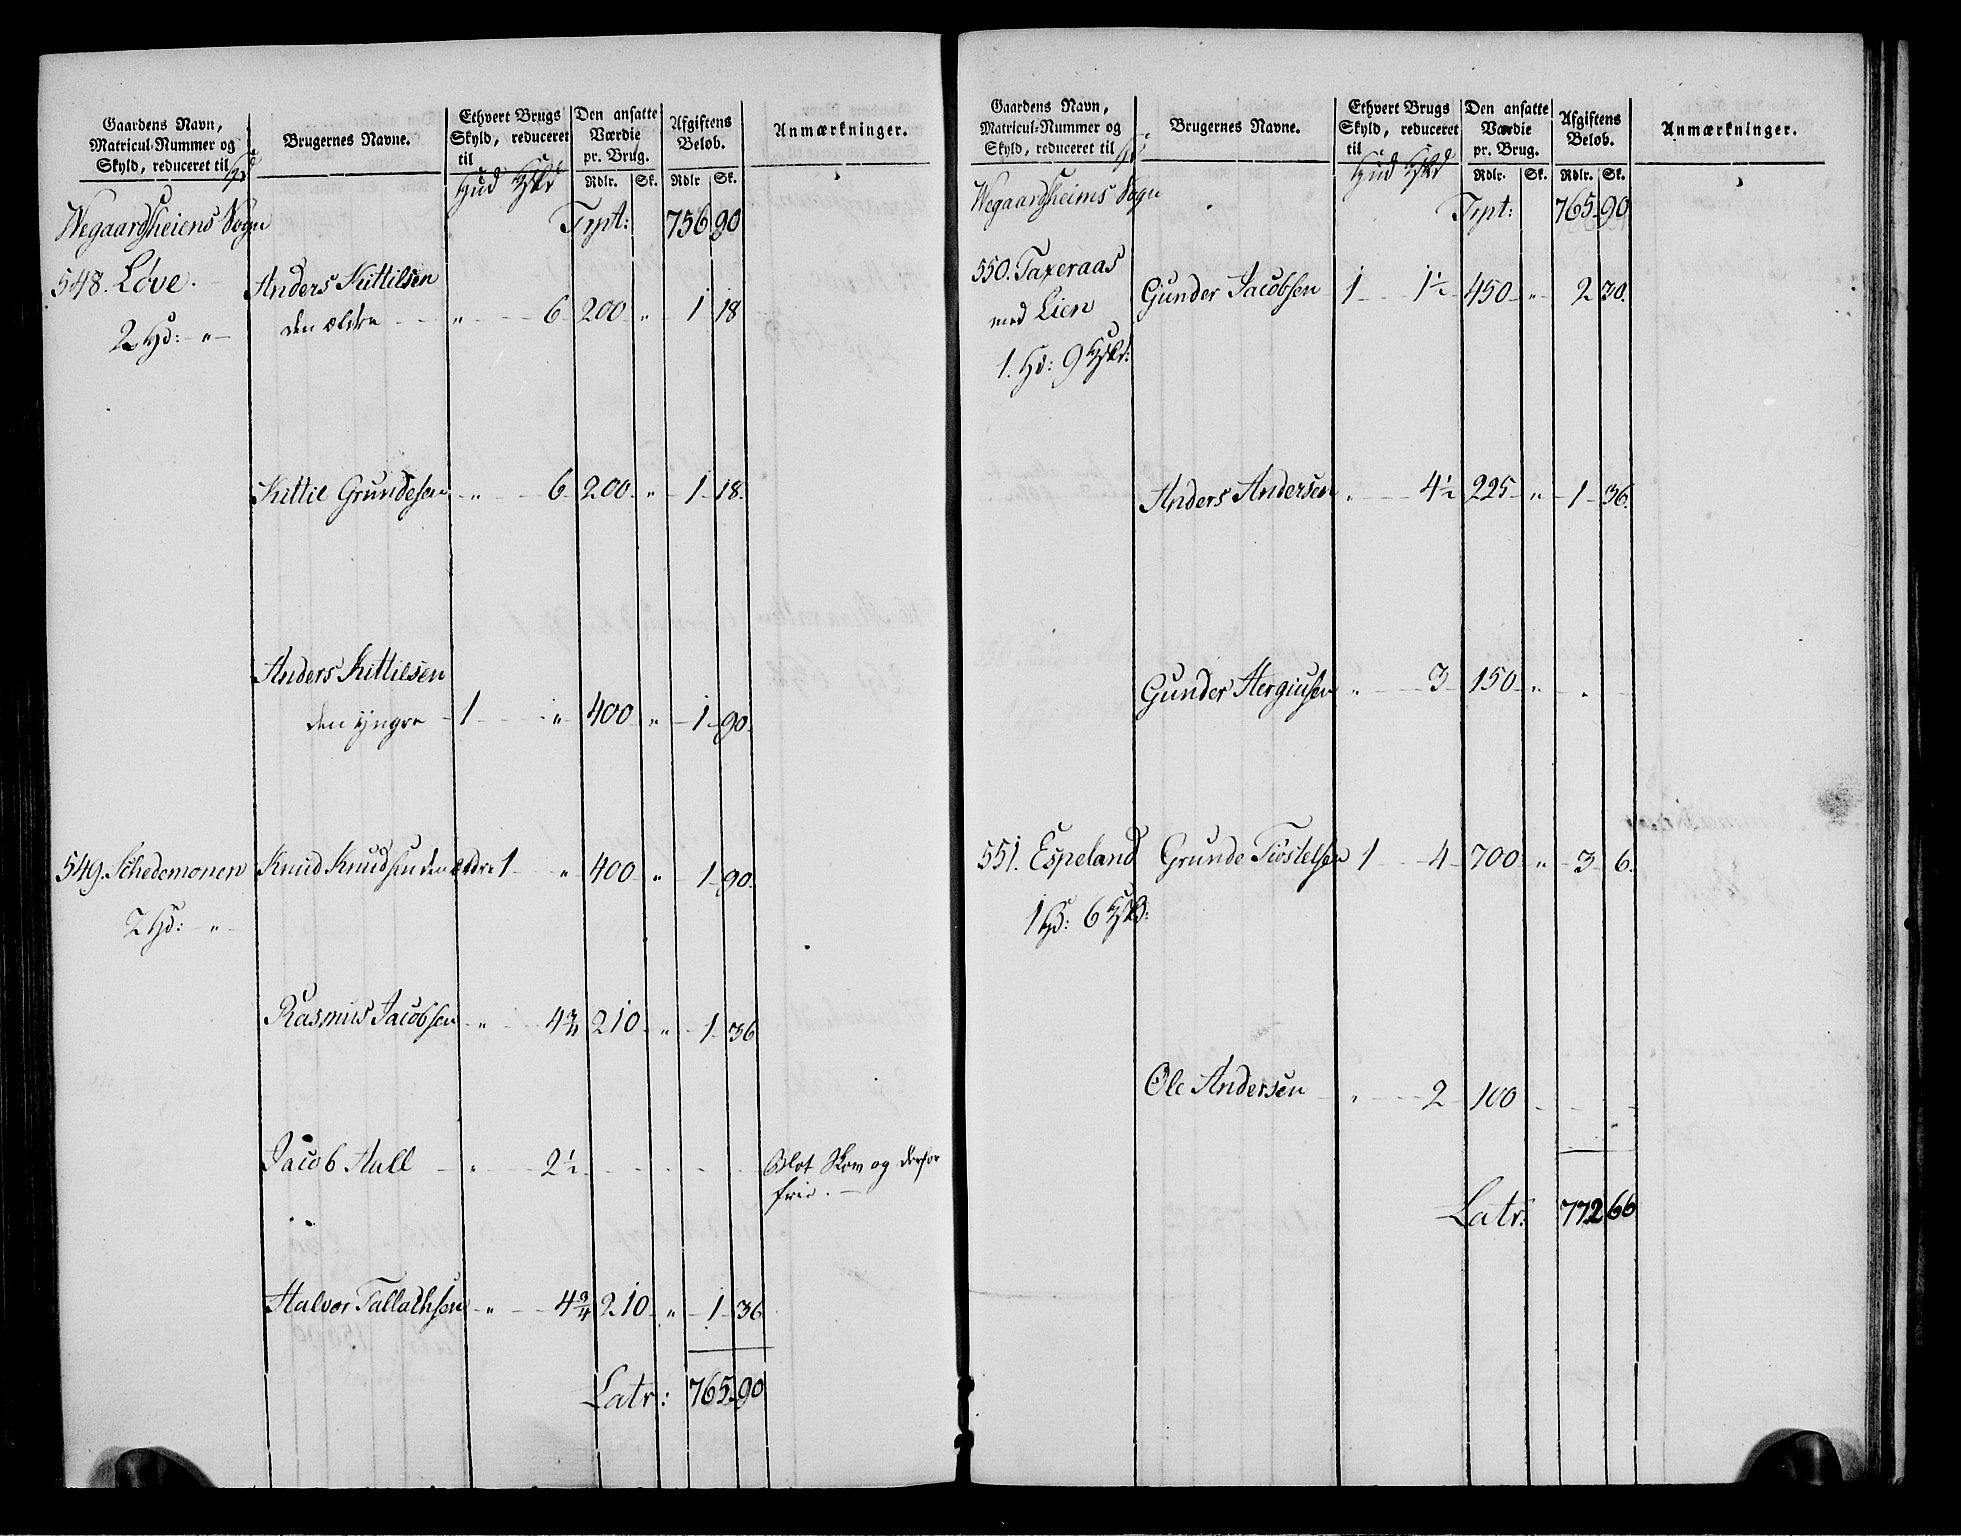 Gaardens Navn, Matricul-Nummer og Skyld, reduceret til Hd
Brugernes Navne.
Ethvert Brugs Skyld, reduceret til
Hud
Den ansatte Værdie pr. Brug.
Rdlr. Sk.
Afgiftens Beløb.
Rdlr Sk.
Anmærkninger.
Wegaardsheiens Sogn Trpt: 756 90
548. Löve. Anders Kittilsen
2 Hd: - " - den ældre " 6 200 " 1 18
Kittil Grundesen " 6 200 " 1 18.
Anders Kittilsen
den yngre 1 " 400 " 1 90.
549. Schedemonen Knud Knudsen den ældre 1 " 400 " 1 90.
2 Hd: - " -
Rasmus Jacobsen " 4¾ 210 " 1 36
Jacob Aall " 2½ Blot Skov og derfor
frie.
Halvor Tallachsen " 4¾ 210 " 1 36
Latr: 765 90
Gaardens Navn, Matricul-Nummer og Skyld, reduceret til Hd
Brugernes Navne.
Ethvert Brugs Skyld, reduceret til
Hud
Den ansatte Værdie pr. Brug.
Rdlr. Sk.
Afgiftens Beløb.
Rdlr. Sk.
Anmærkninger.
Wegaardsheims Sogn Trpt: 765 90
550. Taxeraas Gunder Jacobsen 1 1½ 450 " 2 30.
med Lien
1. Hd: 9
Anders Andersen " 4½ 225 " 1 36.
Gunder Hergiusen " 3 150 " "
551. Espeland Grunde Tiostelsen 1 4 700 " 3 6.
1 Hd: 6
Ole Andersen " 2 100
Latr: 772 66